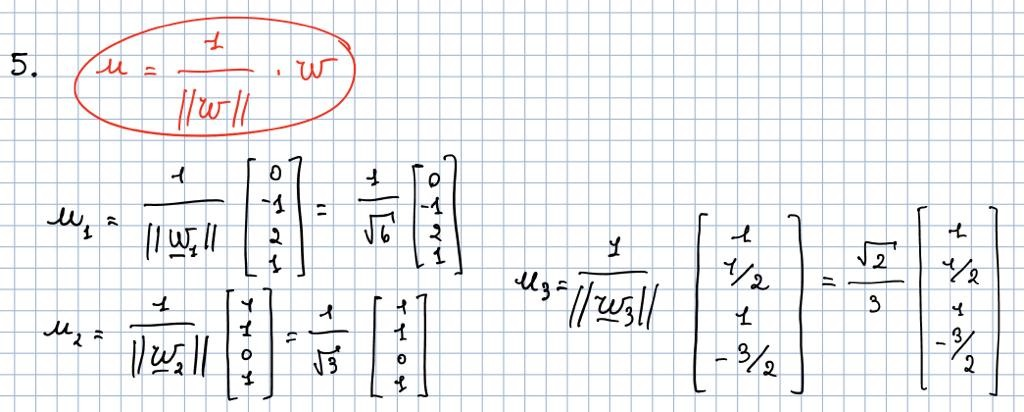 5. u = 1/||w|| · w
u₁ = 1/||w₁|| [0 -1 2 1] = 1/√6 [0 -1 2 1]
u₂ = 1/||w₂|| [1 1 0 1] = 1/√3 [1 1 0 1]
u₃ = 1/||w₃|| [1 1/2 1 -3/2] = √2/3 [1 1/2 1 -3/2]